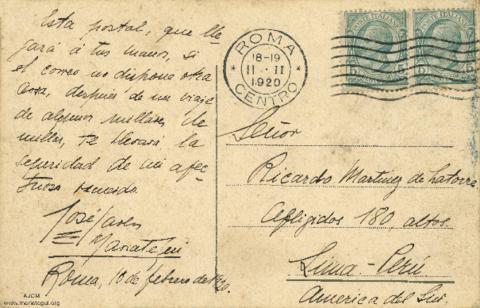 Esta postal, que lle-
gará á tus manos, si
el correo no dispone otra
cosa, después de un viaje
de algunos millares de
millas, te llevará la
seguridad de mi afec-
tuoso recuerdo
José Carlos
Mariátegui
Roma, 10 de febrero de 1920.
ROMA
18-19
11·II
1920
CENTRO
POSTE ITALIANE
5
POSTE ITALIANE
5
Señor
Ricardo Martinez de Latorre
Afligidos 180, altos.
Lima-Perú
America del Sur.
AJCM
www.mariategui.org